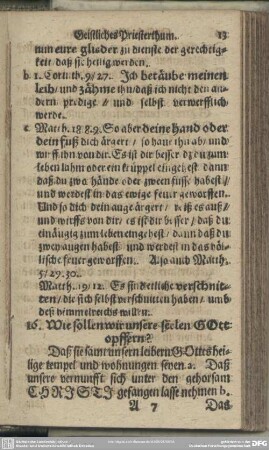 Geistliches Priesterthum. 13
nun eure glieder zu dienste der gerechtig-
keit/ daß sie heilig werden.
b 1. Corinth. 9/27. Ich betäube meinen
leib/ und zähme ihn/ daß ich nicht den an-
dern predige/ und selbst verwerfflich
werde.
c Matth. 18. 8. 9. So aber deine hand oder
dein fuß dich ärgert/ so haue ihn ab/ und
wirff ihn von dir. Es ist dir besser daß du zum
leben lahm oder ein krüppel eingehest dann
daß du zwo hände oder zween füsse habest/
und werdest in das ewige feuer geworffen.
Und so dich dein auge ärgert/ reiß es auß/
und wirffs von dir/ es ist dir besser/ daß du
einäugig zum leben eingehest/ dann daß du
zwey augen habest und werdest in das höl-
lische feuer geworffen. Also auch Matth.
5/29. 30.
Matth. 19/12. Es sind etliche verschnit-
ten/ die sich selbst verschnitten haben/ umb
deß himmelreichs willen.
16. Wie sollen wir unsere seelen GOtt
opffern?
Daß sie samt unsern leibern GOttes hei-
lige tempel und wohnungen seyen a. Daß
unsere vernunfft sich unter den gehorsam
CHRISTI gefangen lasse nehmen b.
A 7 Das